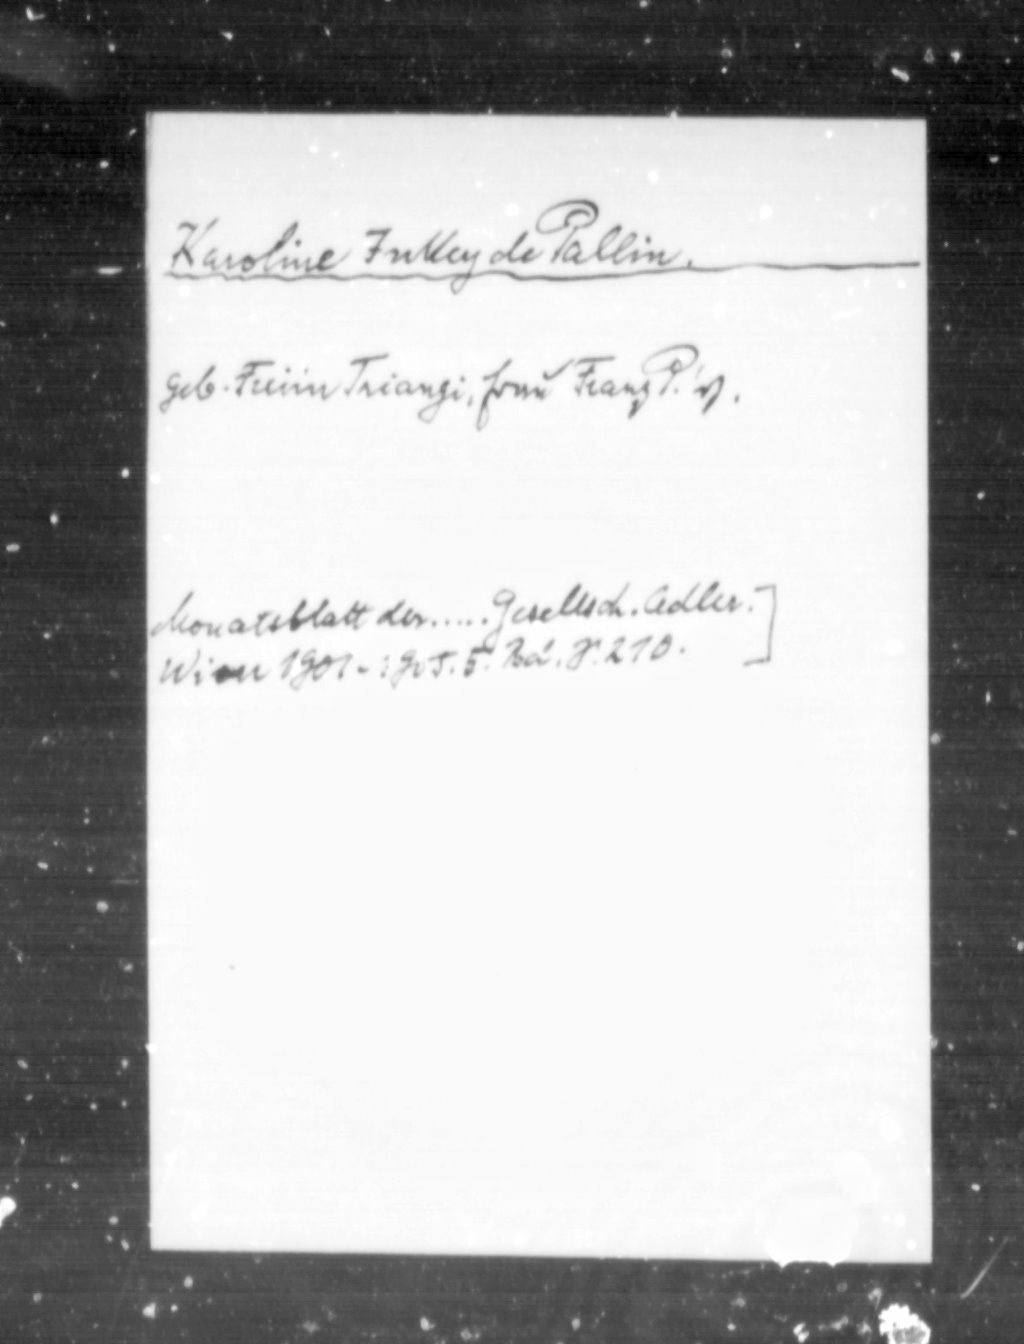 Karoline Inkey de Pallin.
geb. Freiin Triangi, Franz P.
Monatsblatt der..... Gesellsch. Adler.]
Wien 1901-1905. 5. Bd. S. 210.